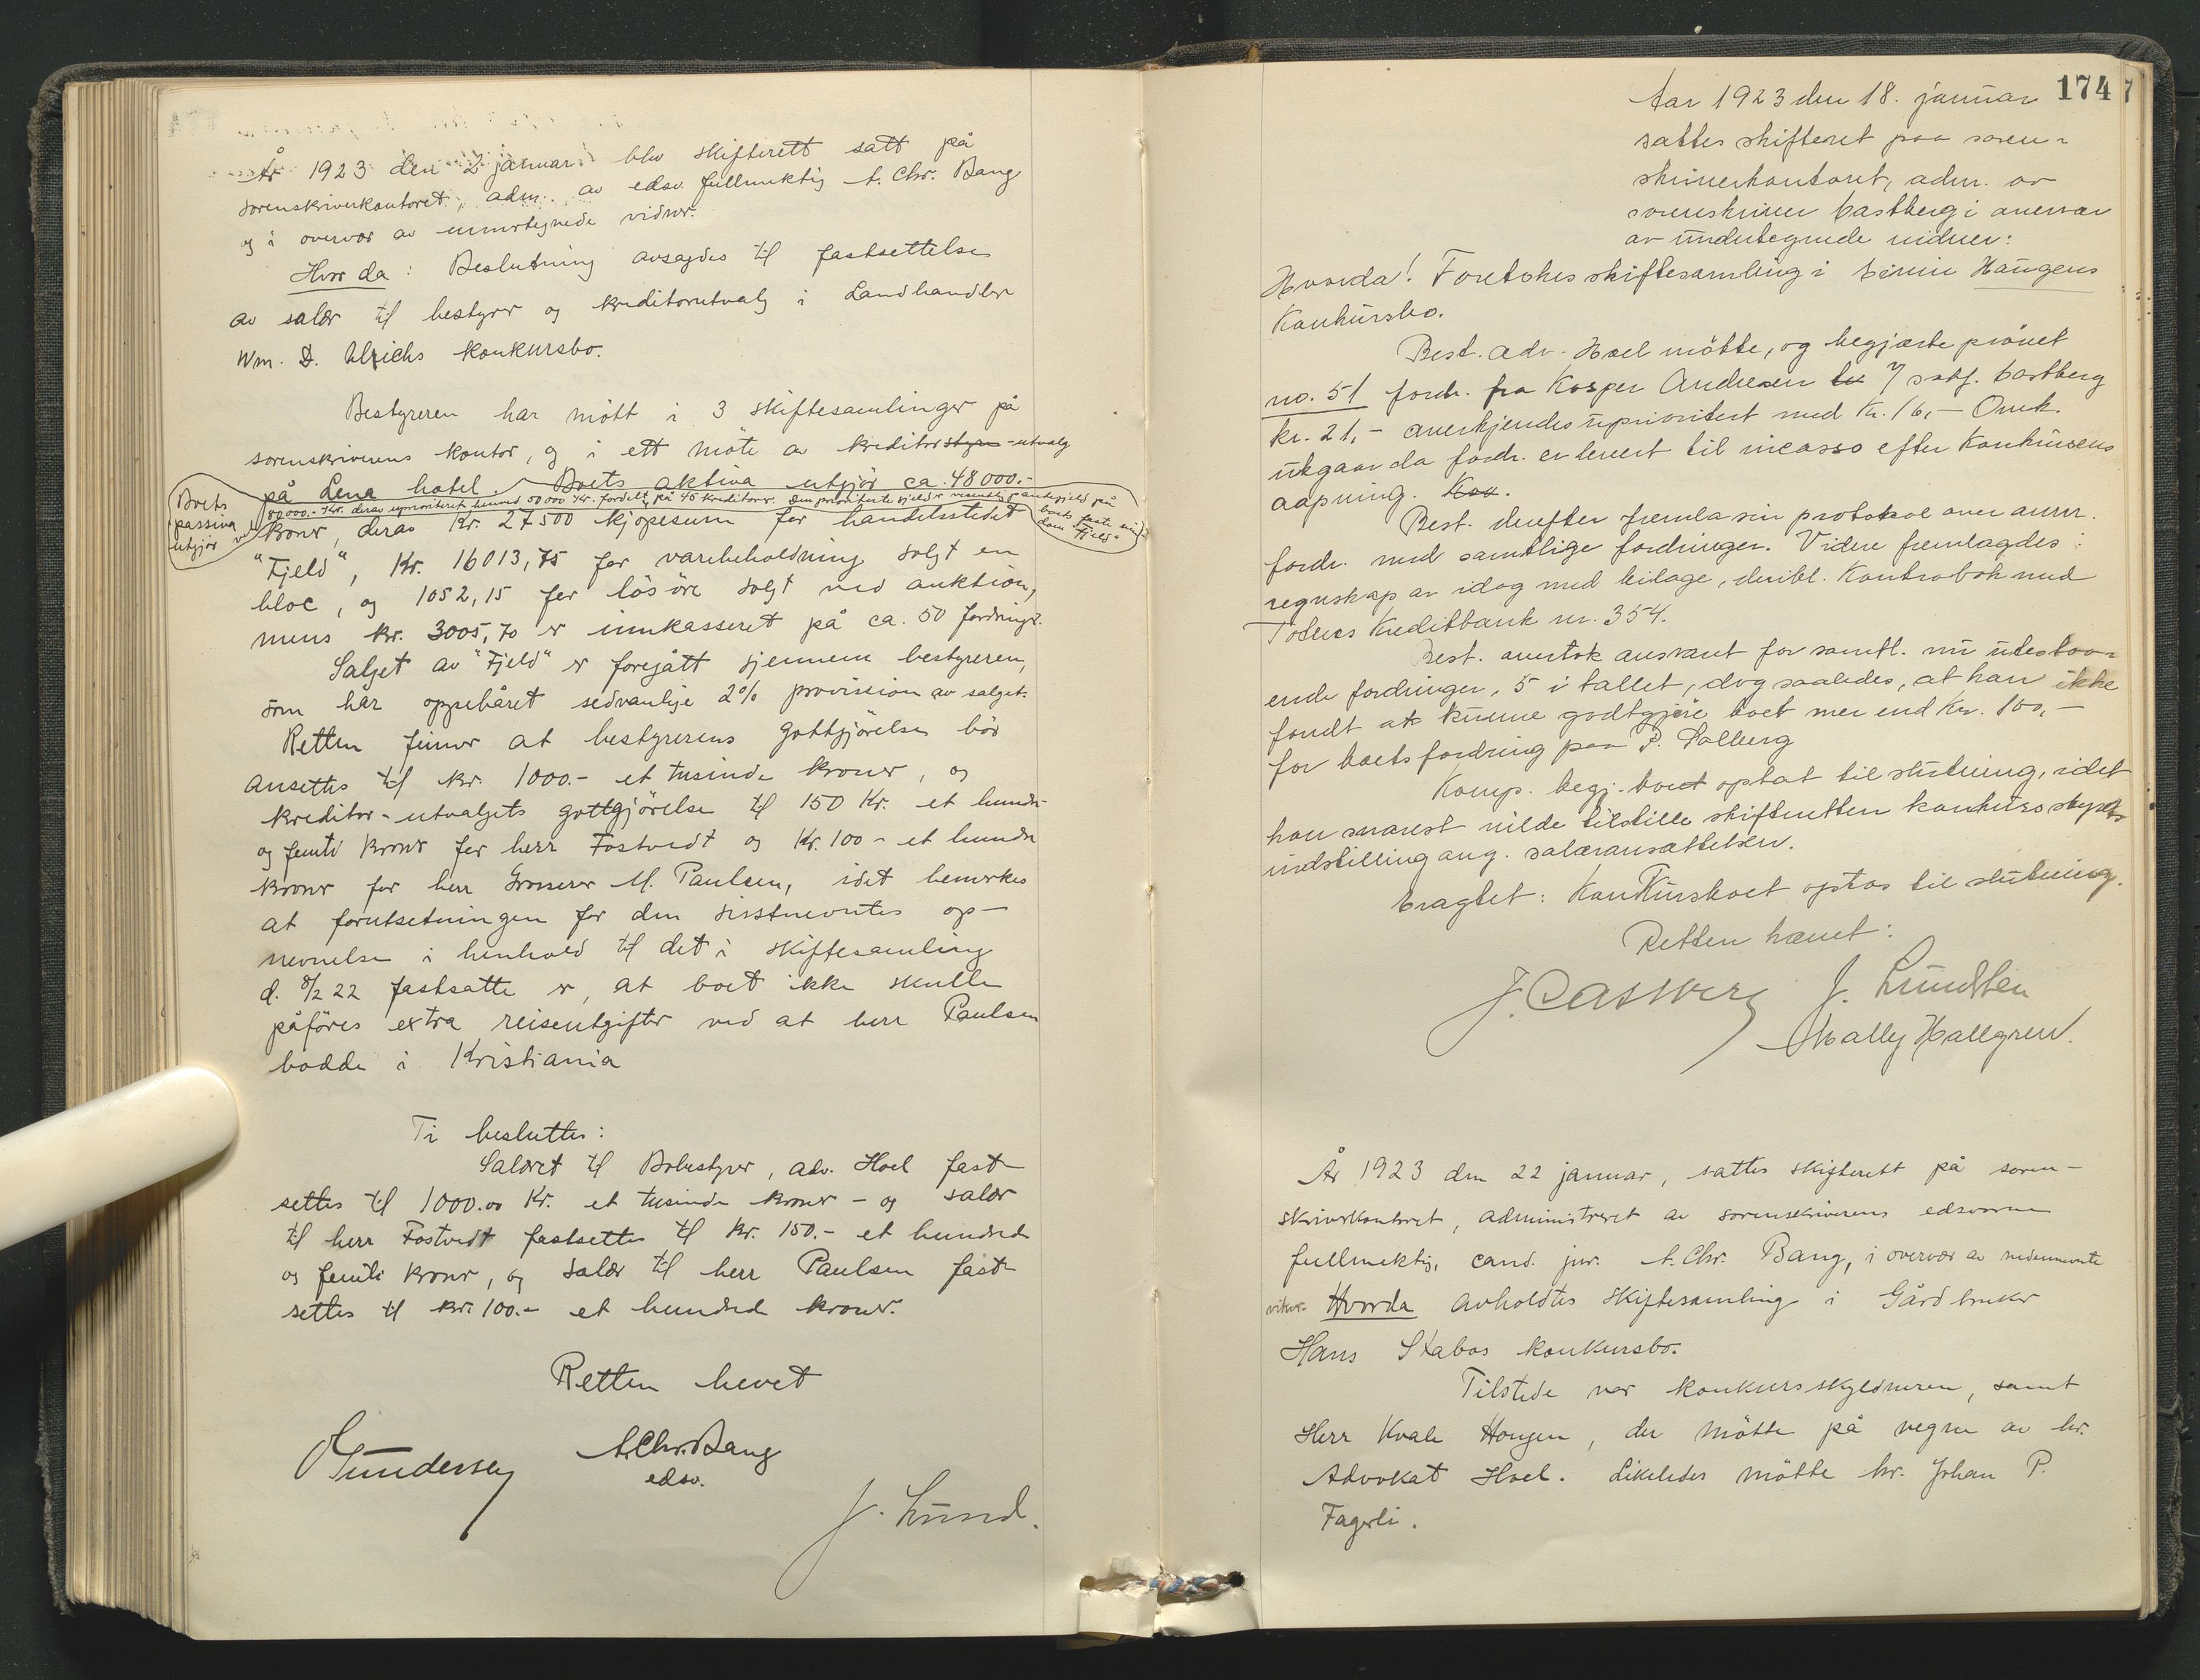 År 1923 den 2 januar blev skifterett satt på
sorenskriverkontoret, adm. av edsv. fullmektig A. Chr. Bang
og i overvær av undertegnede vidner.
Hvor da: Beslutning avsagdes til fastsettelse
av salær til bestyrer og kreditorutvalg i Landhandler
Wm. D. Ulrichs konkursbo.
Bestyreren har mött i 3 skiftesamlinger på
sorenskriverens kontor, og i ett möte av kreditorstyre-utvalg
på Lena hotel Boets aktiva utgjör ca. 48000.-
Boets passiva utgjör ved
80000.- Kr. derav uprioritert hunred 50000 Kr. fordelt på 45 kreditorer. Den prioriterte gjeld er vesentlig pantegjeld på
boets faste eiendom "Fjeld"
kroner, derav Kr. 27500 kjöpesum for handelsstedet
"Fjeld", Kr. 16013,75 for varebeholdning solgt en
bloc, og 1052,15 for lösöre solgt ved auktion,
mens kr. 3005,70 er innkasseret på ca. 50 fordringer.
Salget av "Fjeld" er foregått gjennem bestyreren,
som har oppebåret sedvanlige 2% provision av salget.
Retten finner at bestyrerens gottgjörelse bör
ansettes til kr. 1000.- et tusinde kroner, og
kreditor-utvalgets gottgjörelse til 150 Kr. et hundre
og femti kroner for herr Fostvedt og Kr. 100 - et hundre
kroner for herr Grosserer M. Paulsen, idet bemerkes
at forutsetningen for den sisstnevntes op-
nevnelse i henhold til det i skiftesamling
d. 8/2 22 fastsatte er, at boet ikke skulle
påföres extra reiseutgifter ved at herr Paulsen
bodde i Kristiania
Ti besluttes:
Salæret til Bobestyrer, adv. Hoel fast-
settes til 1000.00 Kr. et tusinde kroner - og salær
til herr Fostvedt fastsettes til kr. 150.- et hundred
og femti kroner, og salær til herr Paulsen fast-
settes til kr. 100.- et hundred kroner.
Retten hevet
O Gundersen A. Chr. Bang
edsv.
J. Lund.
174
Aar 1923 den 18. januar
sattes skifteret paa soren-
skriverkontoret, adm. av
sorenskriver Castberg i overvær
av undertegnede vidner:
Hvorda! Foretokes skiftesamling i Einin Haugens
Konkursbo.
Best. adv. Hoel mötte, og begjærte prövet
no. 51 fordr. fra Kasper Andresen ev 7 sakf. Castberg
kr. 21,- anerkjendes uprioritert med Kr. 16,- Omk.
utgaar da fordr. er levert til incasso efter Konkursens
aapning. Kov.
Best. derefter fremla sin protokol over anm.
fordr. med samtlige fordringer. Videre fremlagdes:
regnskap av idag med bilage, deribl. Kontrabok med
Totens Kreditbank nr. 354.
Best. overtok ansvaret for samtl. nu utestaa-
ende fordringer, 5 i tallet, dog saaledes, at han ikke
fandt at kunne godtgjöre boet mer end Kr. 100,-
for boets fordring paa P. Dalberg
Komp. begj. boet optat til slutning, idet
han snarest vilde tilstille skifteretten konkursstyrets
indstilling ang. salæransættelsen.
Eragtet: Konkursboet optas til slutning.
Retten hævet:
J. Castberg J. Lundsten
Mally Hallgren.
År 1923 den 22 januar, sattes skifterett på soren-
skriverkontoret, administreret av sorenskriverens edsvorne
fullmektig, cand. jur. A. Chr. Bang, i overvær av nedennevnte
vitner. Hvorda avholdtes skiftesamling i Gårdbruker
Hans Stabos konkursbo.
Tilstede var konkursskyldneren, samt
Herr Kvale Haugen, der mötte på vegne av hr.
Advokat Hoel. Likeledes mötte hr. Johan P.
Fagerli.